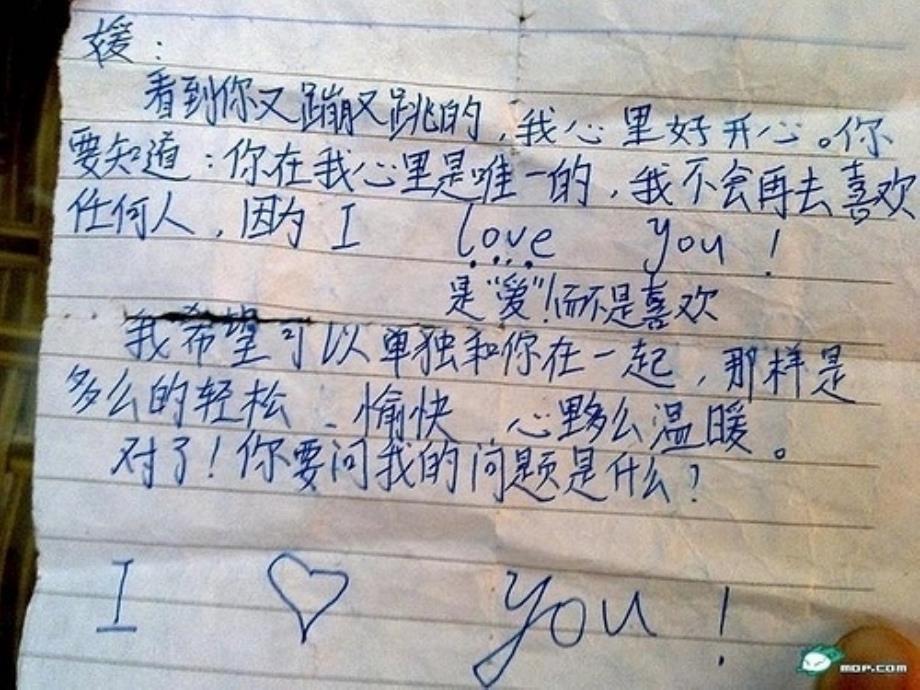 媛：
看到你又蹦又跳的，我心里好开心。你
要知道：你在我心里是唯一的，我不会再去喜欢
任何人，因为 I love you！
是“爱”！而不是喜欢
我希望可以单独和你在一起，那样是
多么的轻松、愉快，心里多么温暖。
对了！你要问我的问题是什么？
I ♡ you！
MOP.COM